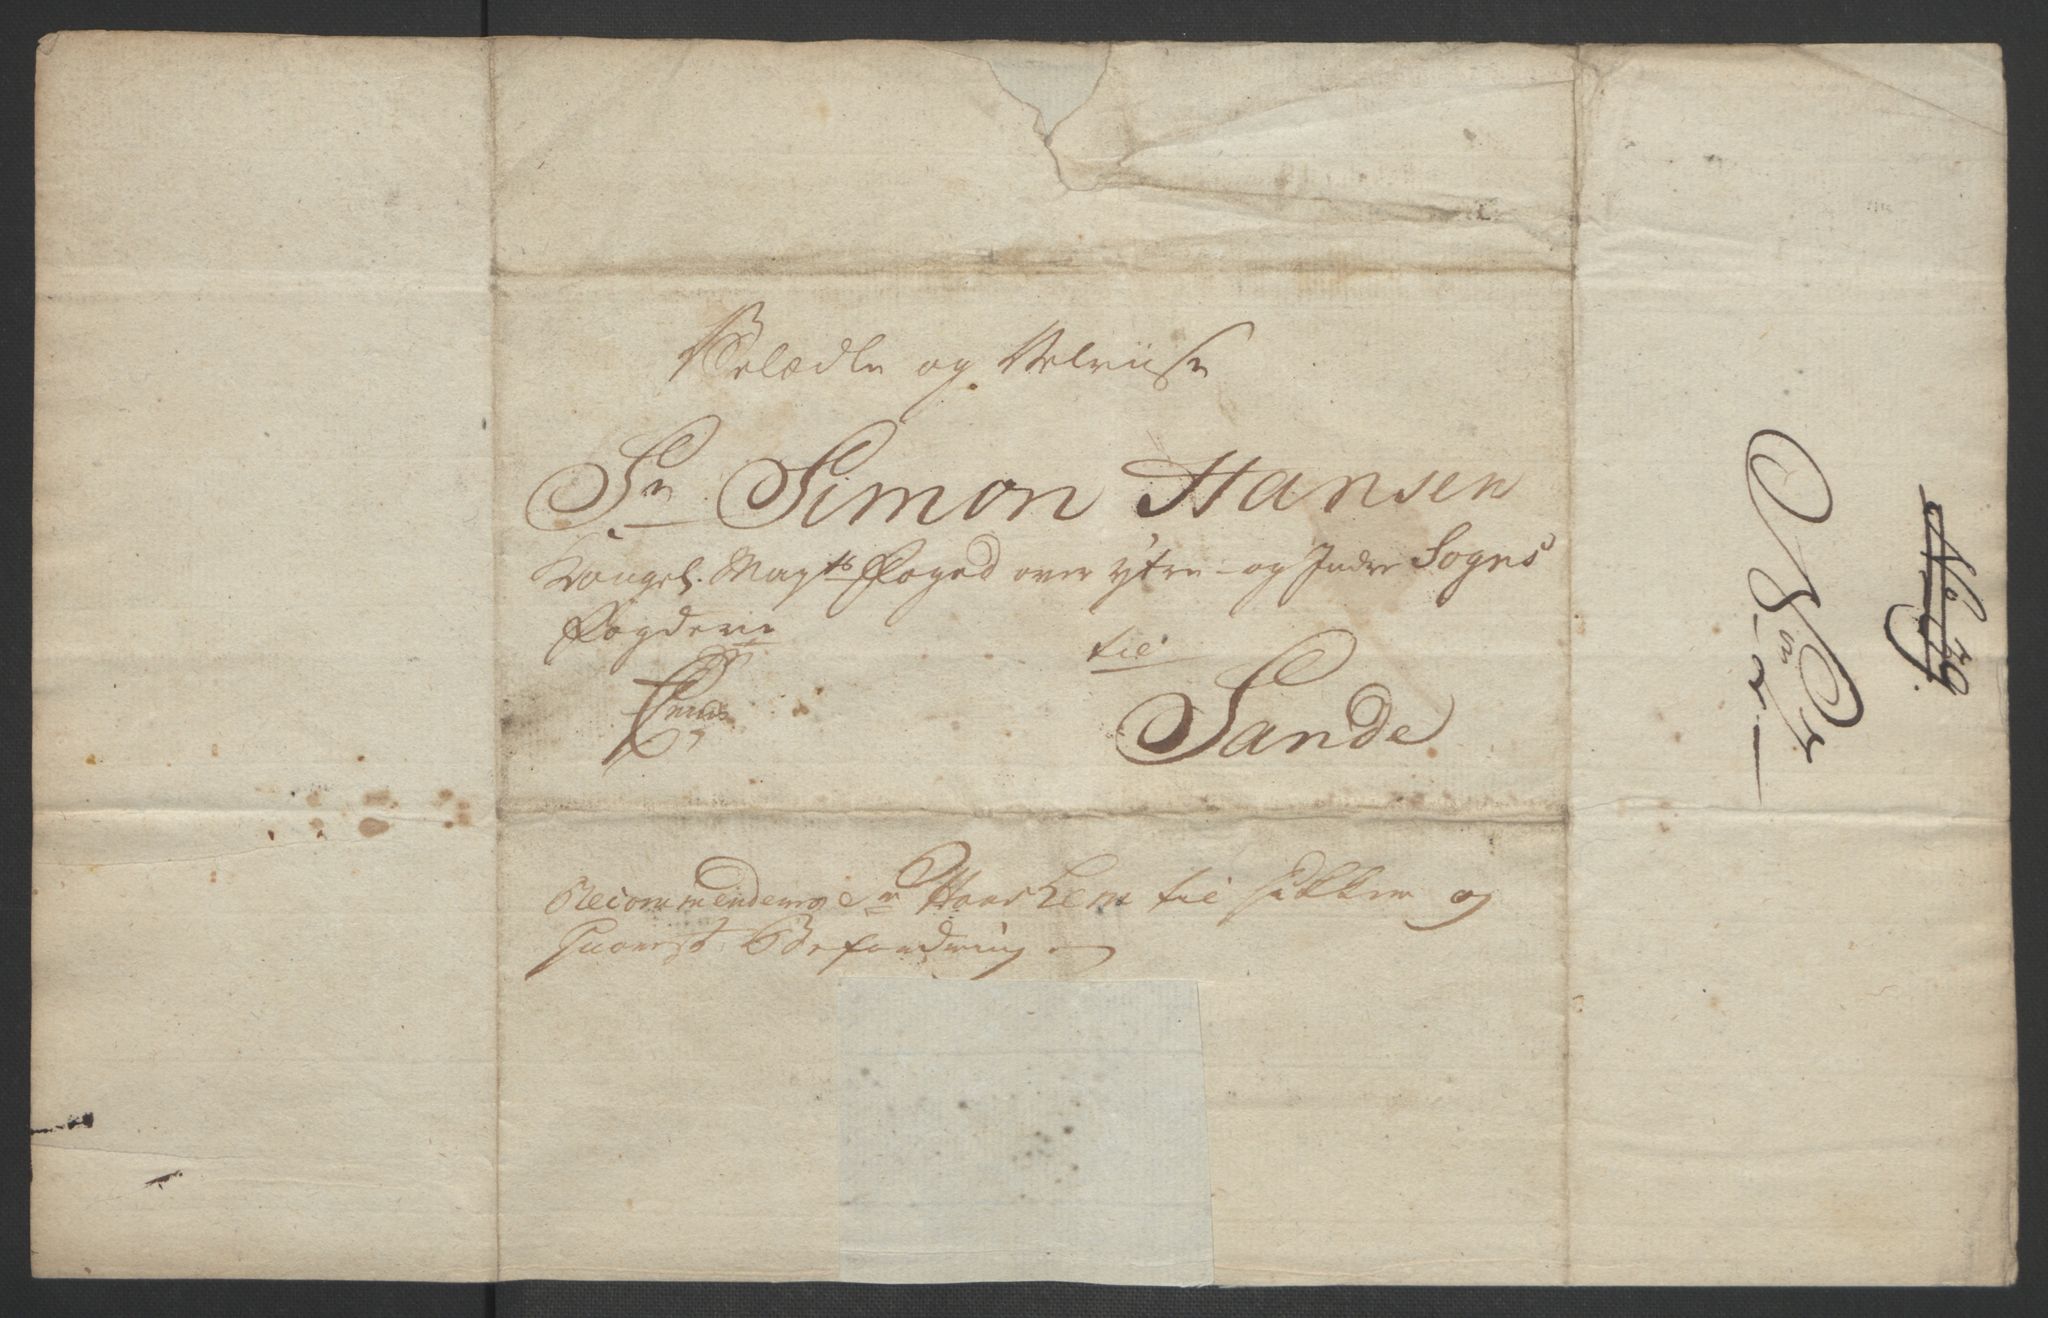 Velædle og Velviise
Sr. Simon Hansen
Kongel. Mayts Foged over ytre og Indre Sogns
Fogderie til
Sande
Recommenderes Sr til sikker og
Befordring
No 79